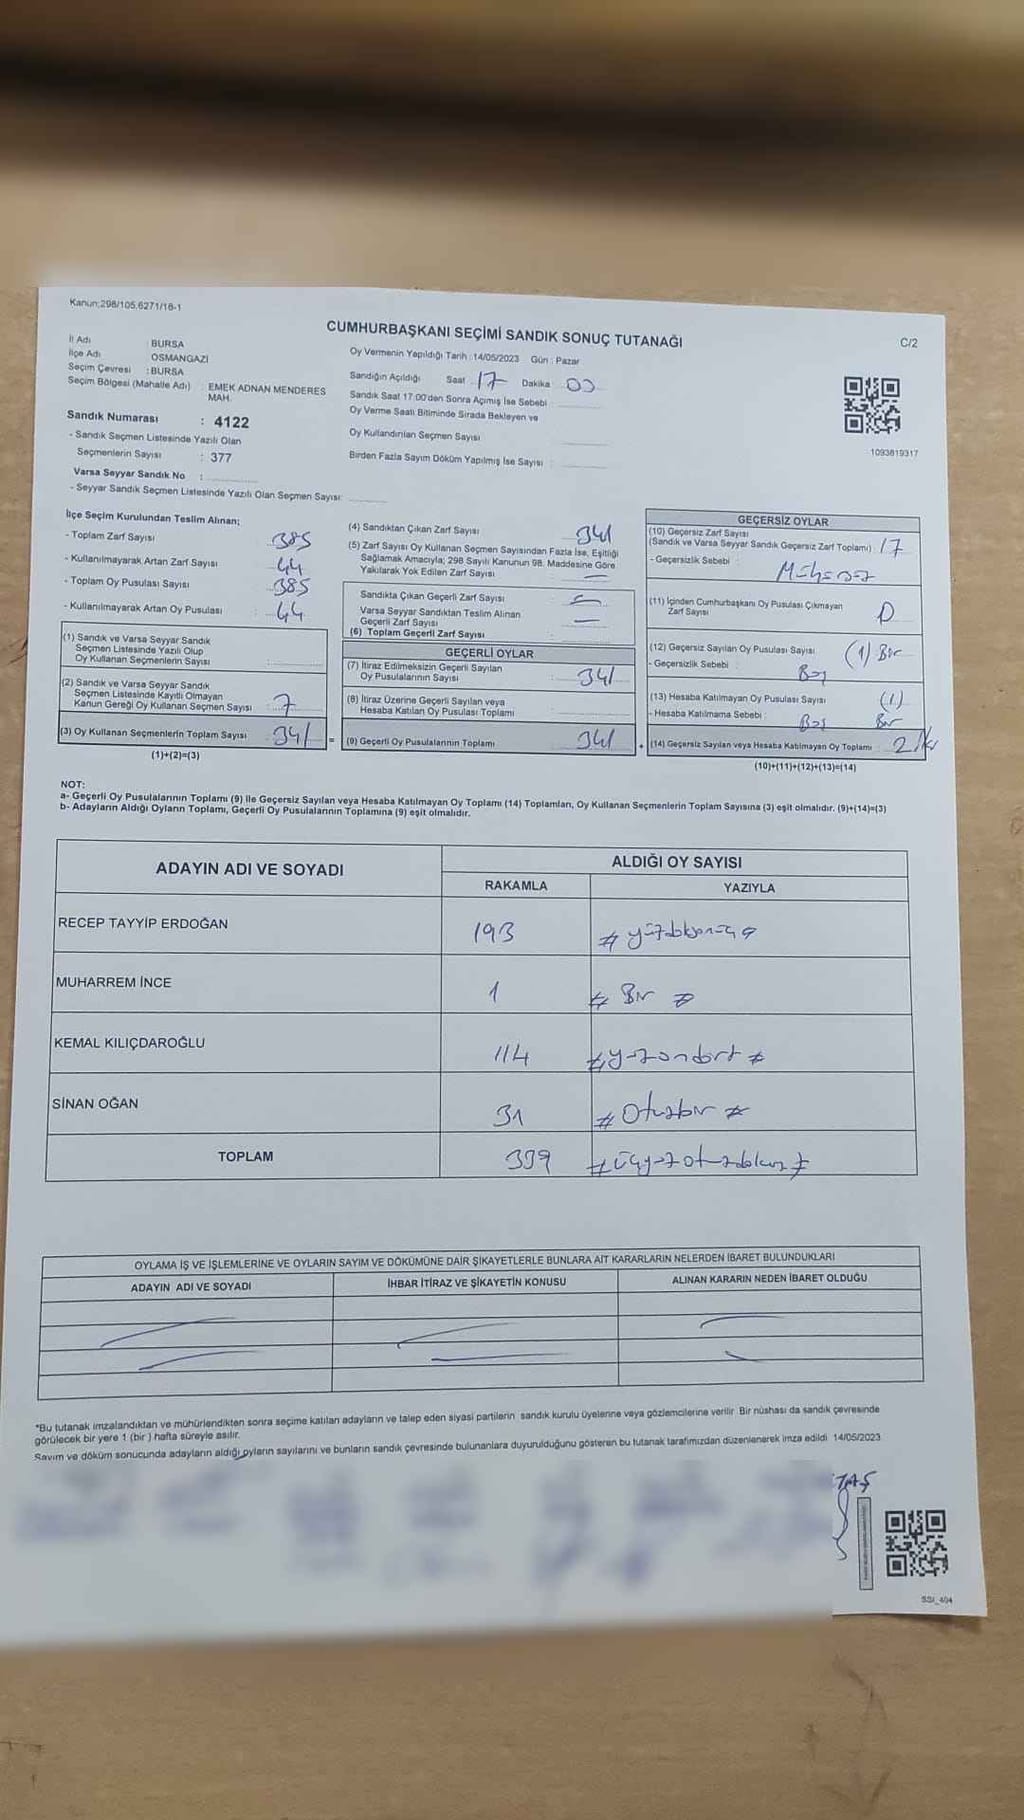 Kanun:298/105,6271/16-1
CUMHURBAŞKANI SEÇİMİ SANDIK SONUÇ TUTANAĞI
C/2
İl Adı : BURSA
İlçe Adı OSMANGAZİ
Seçim Çevresi : BURSA
Seçim Bölgesi (Mahalle Adı) EMEK ADNAN MENDERES MAH.
Sandık Numarası : 4122
- Sandık Seçmen Listesinde Yazılı Olan
Seçmenlerin Sayısı : 377
Varsa Seyyar Sandık No :
- Seyyar Sandık Seçmen Listesinde Yazılı Olan Seçmen Sayısı:
Oy Vermenin Yapıldığı Tarih : 14/05/2023 Gün : Pazar
Sandığın Açıldığı Saat 17 Dakika 00
Sandık Saat 17:00'den Sonra Açılmış İse Sebebi
Oy Verme Saati Bitiminde Sırada Bekleyen ve
Oy Kullandırılan Seçmen Sayısı
Birden Fazla Sayım Döküm Yapılmış İse Sayısı :
1093819317
İlçe Seçim Kurulundan Teslim Alınan;
- Toplam Zarf Sayısı 385
- Kullanılmayarak Artan Zarf Sayısı 44
- Toplam Oy Pusulası Sayısı 385
- Kullanılmayarak Artan Oy Pusulası : 44
(1) Sandık ve Varsa Seyyar Sandık
Seçmen Listesinde Yazılı Olup
Oy Kullanan Seçmenlerin Sayısı :
(2) Sandık ve Varsa Seyyar Sandık
Seçmen Listesinde Kayıtlı Olmayan
Kanun Gereği Oy Kullanan Seçmen Sayısı : 7
(3) Oy Kullanan Seçmenlerin Toplam Sayısı 341 =
(1)+(2)=(3)
(4) Sandıktan Çıkan Zarf Sayısı 341
(5) Zarf Sayısı Oy Kullanan Seçmen Sayısından Fazla İse, Eşitliği
Sağlamak Amacıyla; 298 Sayılı Kanunun 98. Maddesine Göre
Yakılarak Yok Edilen Zarf Sayısı
Sandıkta Çıkan Geçerli Zarf Sayısı
Varsa Seyyar Sandıktan Teslim Alınan
Geçerli Zarf Sayısı
(6) Toplam Geçerli Zarf Sayısı
GEÇERLİ OYLAR
(7) İtiraz Edilmeksizin Geçerli Sayılan
Oy Pusulalarının Sayısı : 341
(8) İtiraz Üzerine Geçerli Sayılan veya
Hesaba Katılan Oy Pusulası Toplamı
(9) Geçerli Oy Pusulalarının Toplamı 341 +
GEÇERSİZ OYLAR
(10) Geçersiz Zarf Sayısı
(Sandık ve Varsa Seyyar Sandık Geçersiz Zarf Toplamı) 17
- Geçersizlik Sebebi : Mühürsüz
(11) İçinden Cumhurbaşkanı Oy Pusulası Çıkmayan
Zarf Sayısı
(12) Geçersiz Sayılan Oy Pusulası Sayısı (1) Bir
- Geçersizlik Sebebi : Boş
(13) Hesaba Katılmayan Oy Pusulası Sayısı (1)
- Hesaba Katılmama Sebebi : Boş Bir
(14) Geçersiz Sayılan veya Hesaba Katılmayan Oy Toplamı 2 İki
(10)+(11)+(12)+(13)=(14)
NOT:
a- Geçerli Oy Pusulalarının Toplamı (9) ile Geçersiz Sayılan veya Hesaba Katılmayan Oy Toplamı (14) Toplamları, Oy Kullanan Seçmenlerin Toplam Sayısına (3) eşit olmalıdır. (9)+(14)=(3)
b- Adayların Aldığı Oyların Toplamı, Geçerli Oy Pusulalarının Toplamına (9) eşit olmalıdır.
ADAYIN ADI VE SOYADI
ALDIĞI OY SAYISI
RAKAMLA YAZIYLA
RECEP TAYYİP ERDOĞAN 193 # yüzdoksanüç #
MUHARREM İNCE 1 # Bir #
KEMAL KILIÇDAROĞLU 114 # yüzondört #
SİNAN OĞAN 31 # Otuzbir #
TOPLAM 339 # üçyüzotuzdokuz #
OYLAMA İŞ VE İŞLEMLERİNE VE OYLARIN SAYIM VE DÖKÜMÜNE DAİR ŞİKAYETLERLE BUNLARA AİT KARARLARIN NELERDEN İBARET BULUNDUKLARI
ADAYIN ADI VE SOYADI İHBAR İTİRAZ VE ŞİKAYETİN KONUSU ALINAN KARARIN NEDEN İBARET OLDUĞU
*Bu tutanak imzalandıktan ve mühürlendikten sonra seçime katılan adayların ve talep eden siyasi partilerin sandık kurulu üyelerine veya gözlemcilerine verilir. Bir nüshası da sandık çevresinde
görülecek bir yere 1 (bir ) hafta süreyle asılır.
Sayım ve döküm sonucunda adayların aldığı oyların sayılarını ve bunların sandık çevresinde bulunanlara duyurulduğunu gösteren bu tutanak tarafımızdan düzenlenerek imza edildi. 14/05/2023
TAŞ
SSI_404